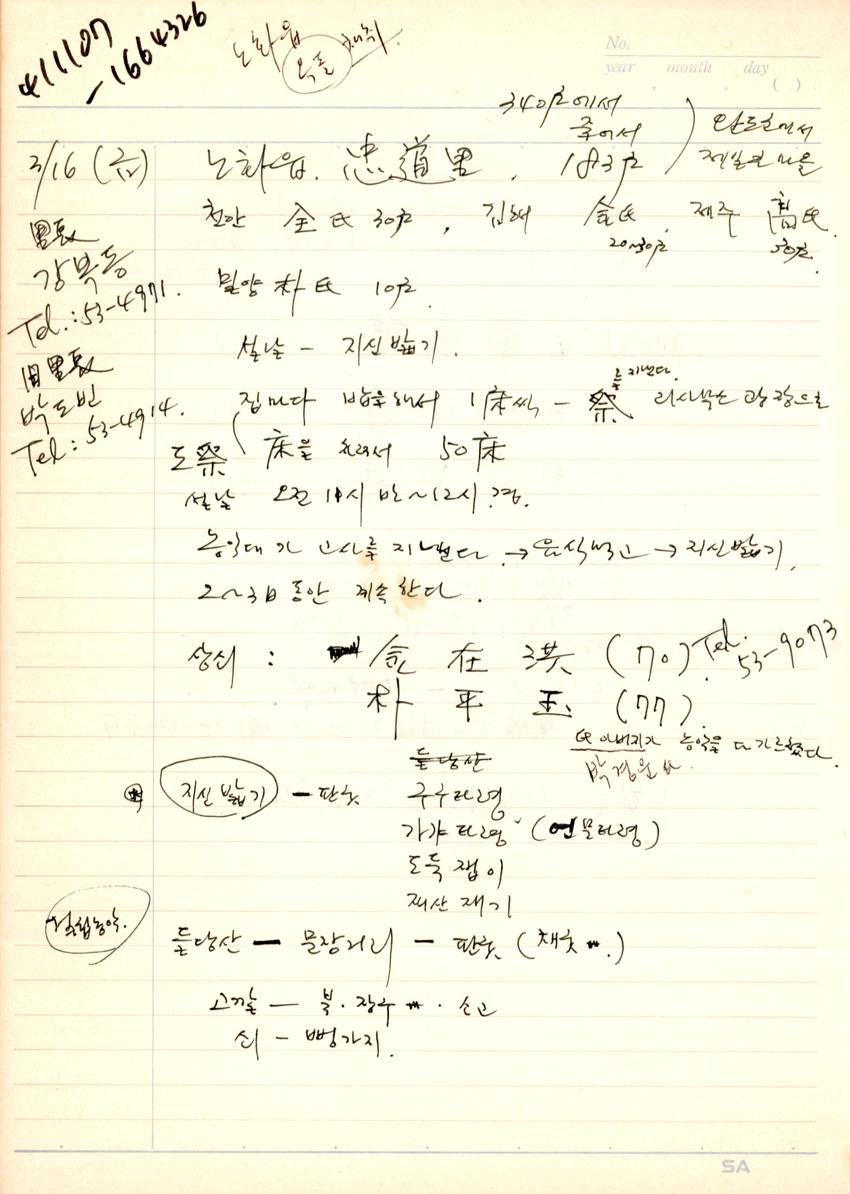 411107
-1664326
노화읍
No.
year month day
( )
340戶에서
줄어서
완도군에서
제일 큰 마을
3/16 (금)
노화읍. 忠道里. 183戶
천안 全氏 30戶, 김해 金氏, 제주 高氏.
20~30戶
밀양 朴氏 10戶.
里長
강복동
Tel.: 53-4971.
설날 - 지신밟기.
旧里長
박도빈
Tel: 53-4914.
를 지낸다.
집마다 밥을 해서 1床씩 - 祭
도祭 床을 차려서 50床
설날 오전 11시 반~12시 경.
농악대가 고사를 지낸다 → 음식먹고 → 지신밟기.
2~3日 동안 계속한다.
상쇠 : 金在洪 (70) Tel. 53-9073
朴平玉 (77).
氏 아버지가 농악을 다 가르쳤다.
들당산
지신밟기 - 판굿 구구타령
가갸타령 (언문타령)
도둑잽이
재산재기
걸립농악.
들당산 - 문장거리 - 판굿 (채굿 〃.)
고깔 - 북. 장구 〃. 소고
쇠 - 뻥거지.
SA